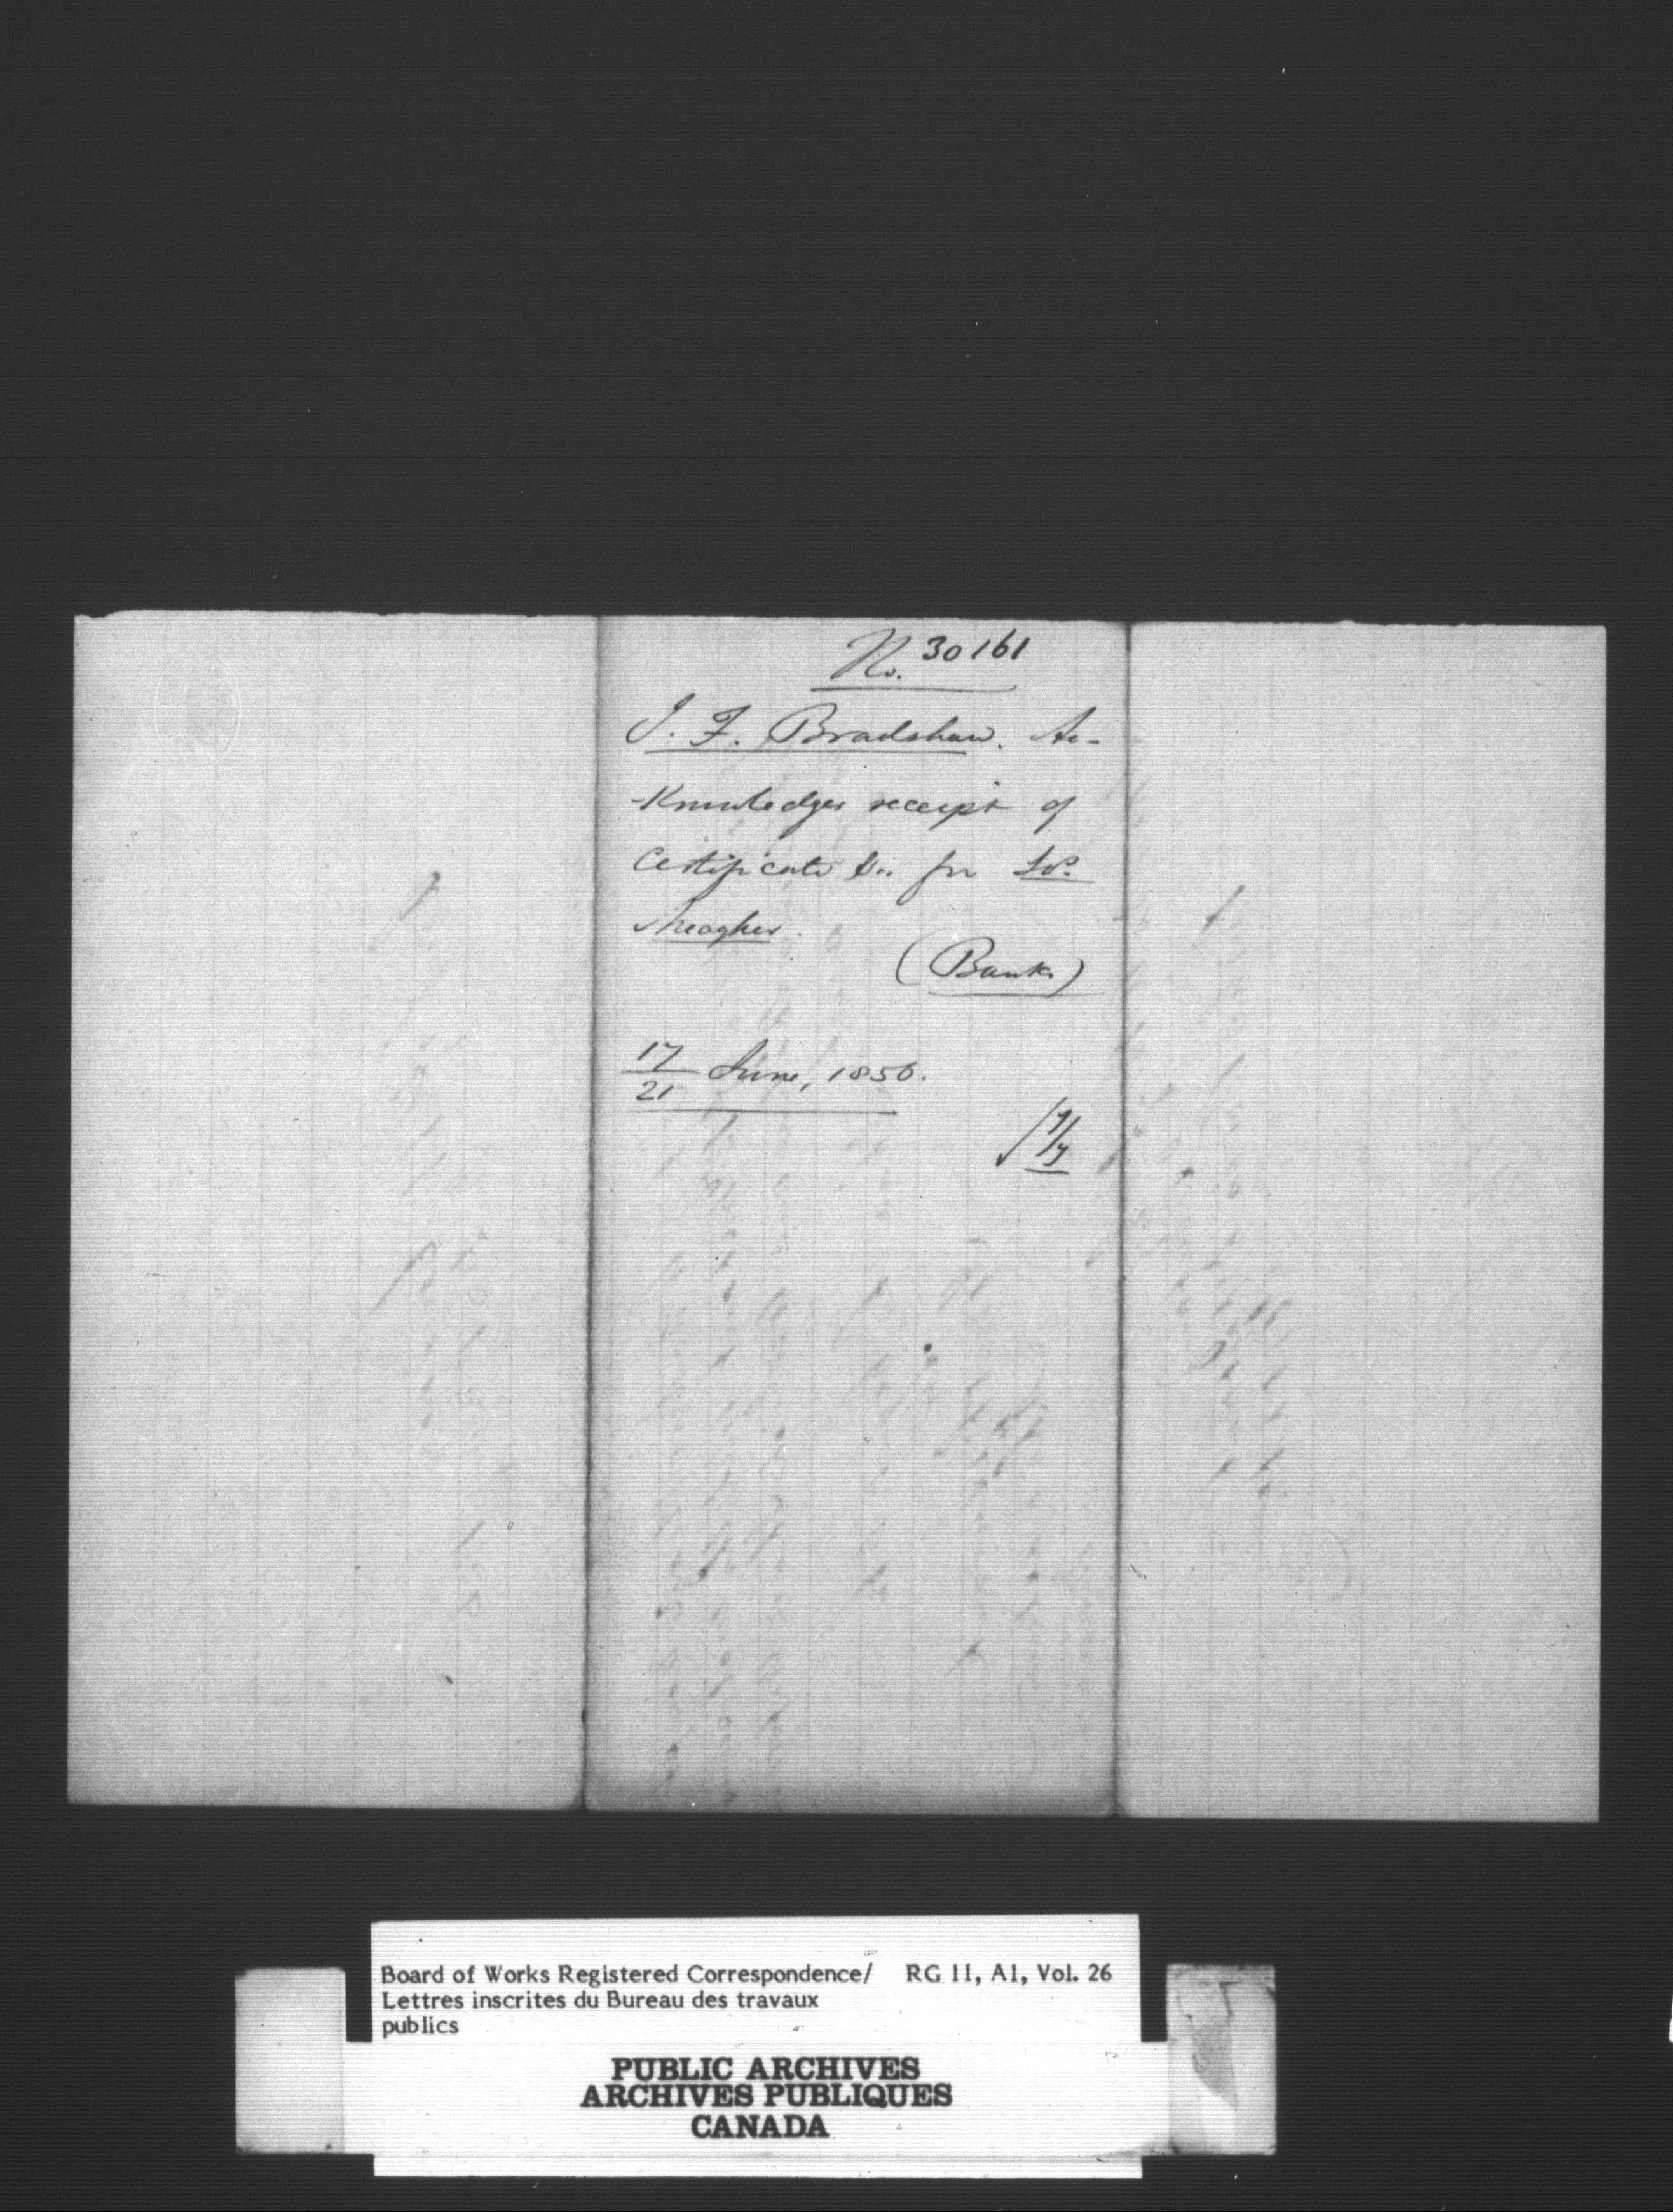 No. 30161
J. F. Bradshaw. Ac-
-knowledges receipt of
Certificate &c. for
Meagher.
(Banks)
17/21 June, 1856.
Board of Works Registered Correspondence/ RG 11, A1, Vol. 26
Lettres inscrites du Bureau des travaux
publics
PUBLIC ARCHIVES
ARCHIVES PUBLIQUES
CANADA